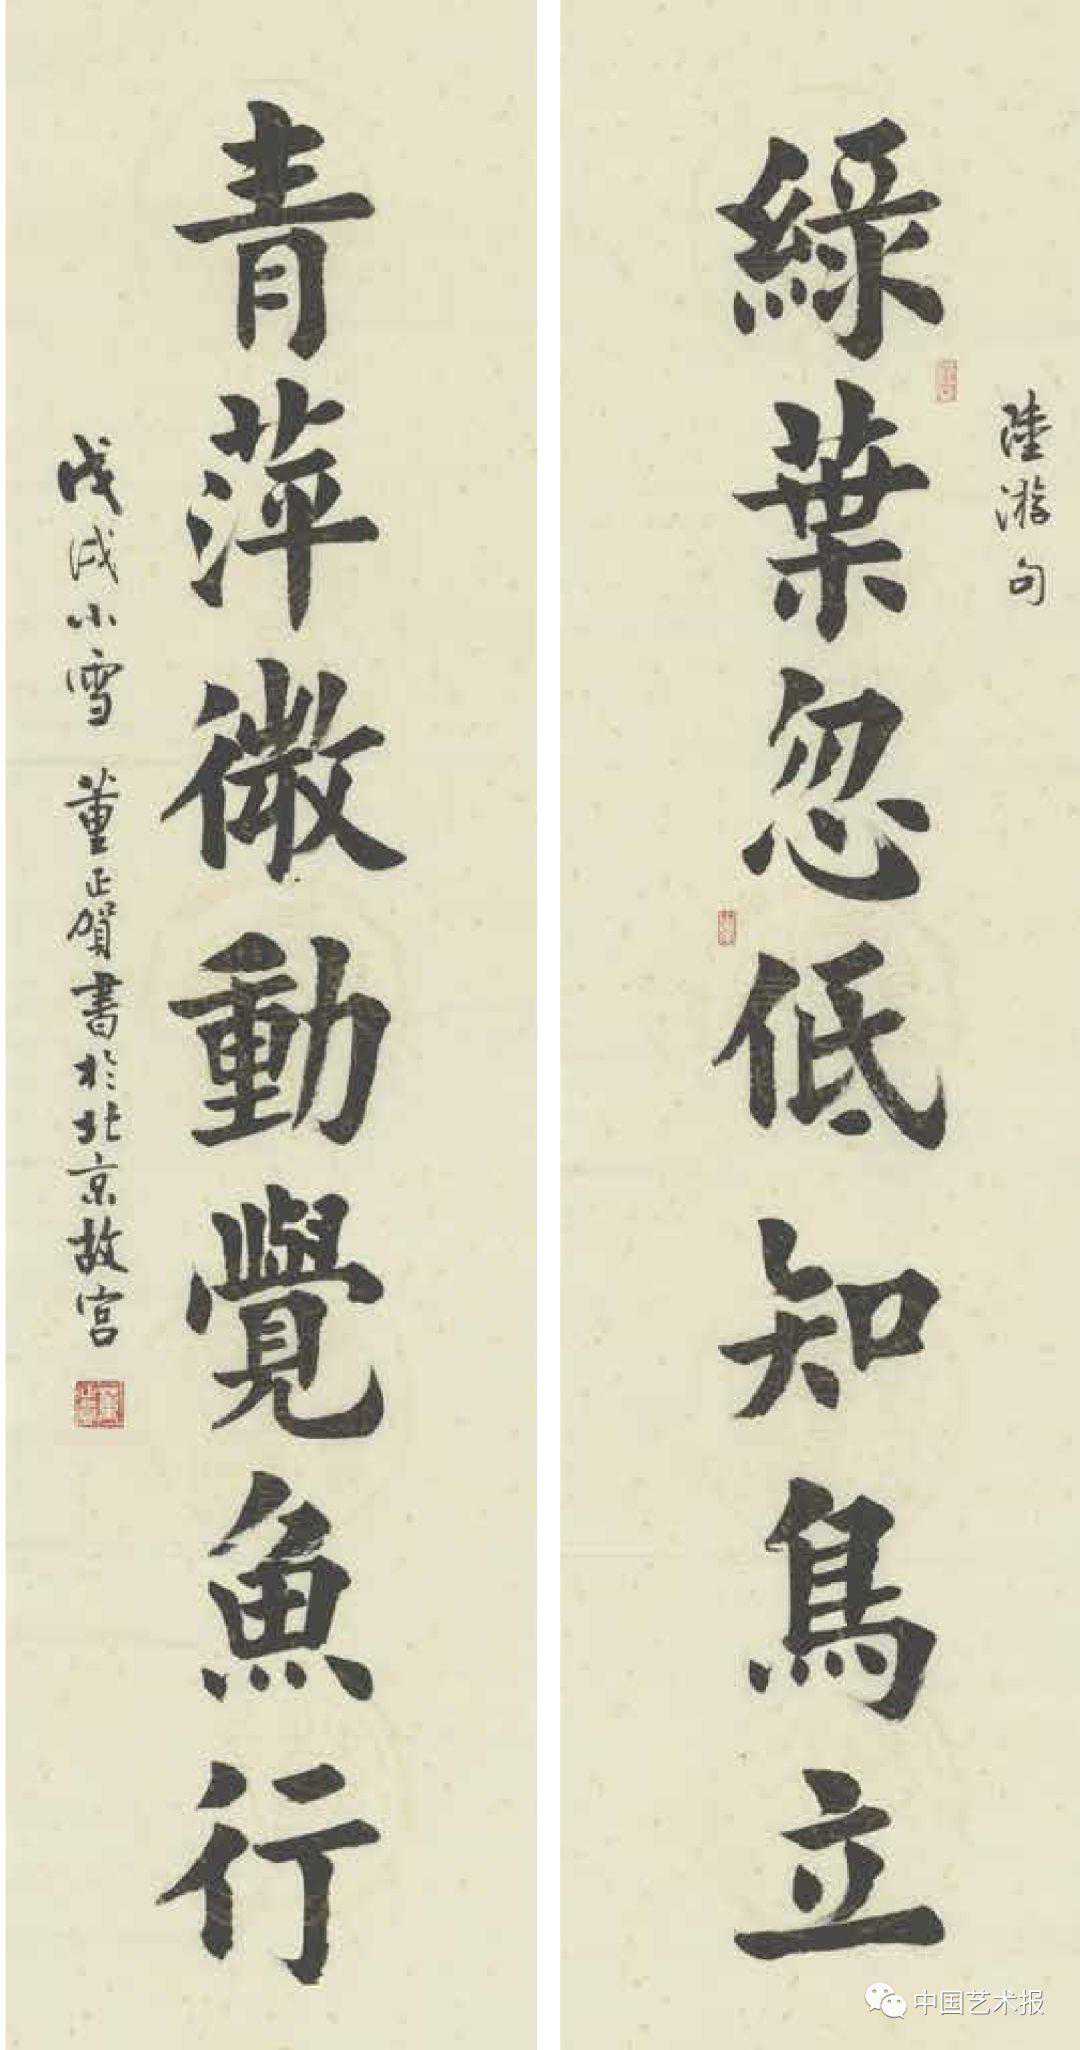 陸游句
綠葉忽低知鳥立
青萍微動覺魚行
戊戌小雪 董正賀書於北京故宮
中国艺术报